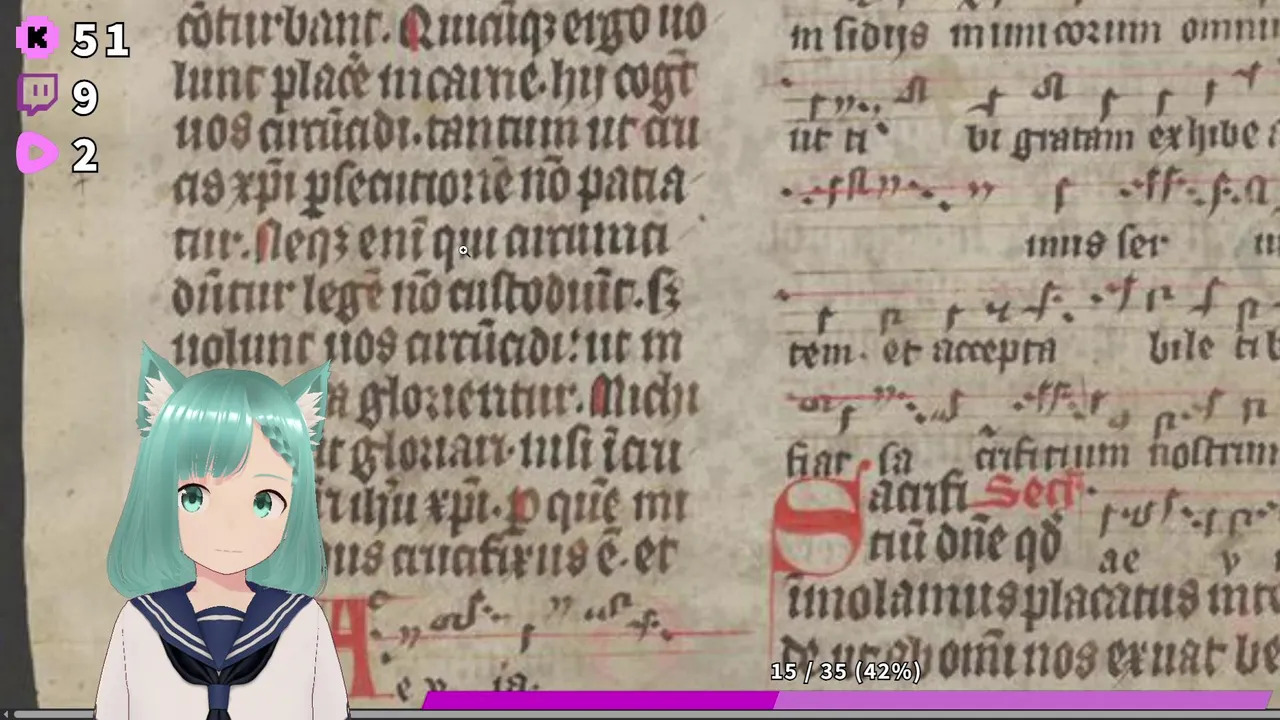 51
9
2
cōturbant. Quicūqꝫ ergo uo
lunt placē in carne. hii cogt
uos circūcidi. tantum ut cru
cis xp̄i ꝑsecutionē nō patia
tur. Neqꝫ eni qui circumci
dūtur legē nō custodiūt. sꝫ
uolunt uos circūcidi: ut in
a glorientur. Michi
t gloriari. nisi ī cru
ihū xp̄i. ꝑ quē mi
us crucifixus ē. et
A
e v ia.
in sidijs inimicorum omni
ut ti bi gratam exhibe
mus ser
tem. et accepta bile ti b
fiat sa crificium nostrum
Sacrifi Secr
ciū dn̄e qd̄ ae v
īmolamus placatus
de ut ab omi nos exuat be
15 / 35 (42%)